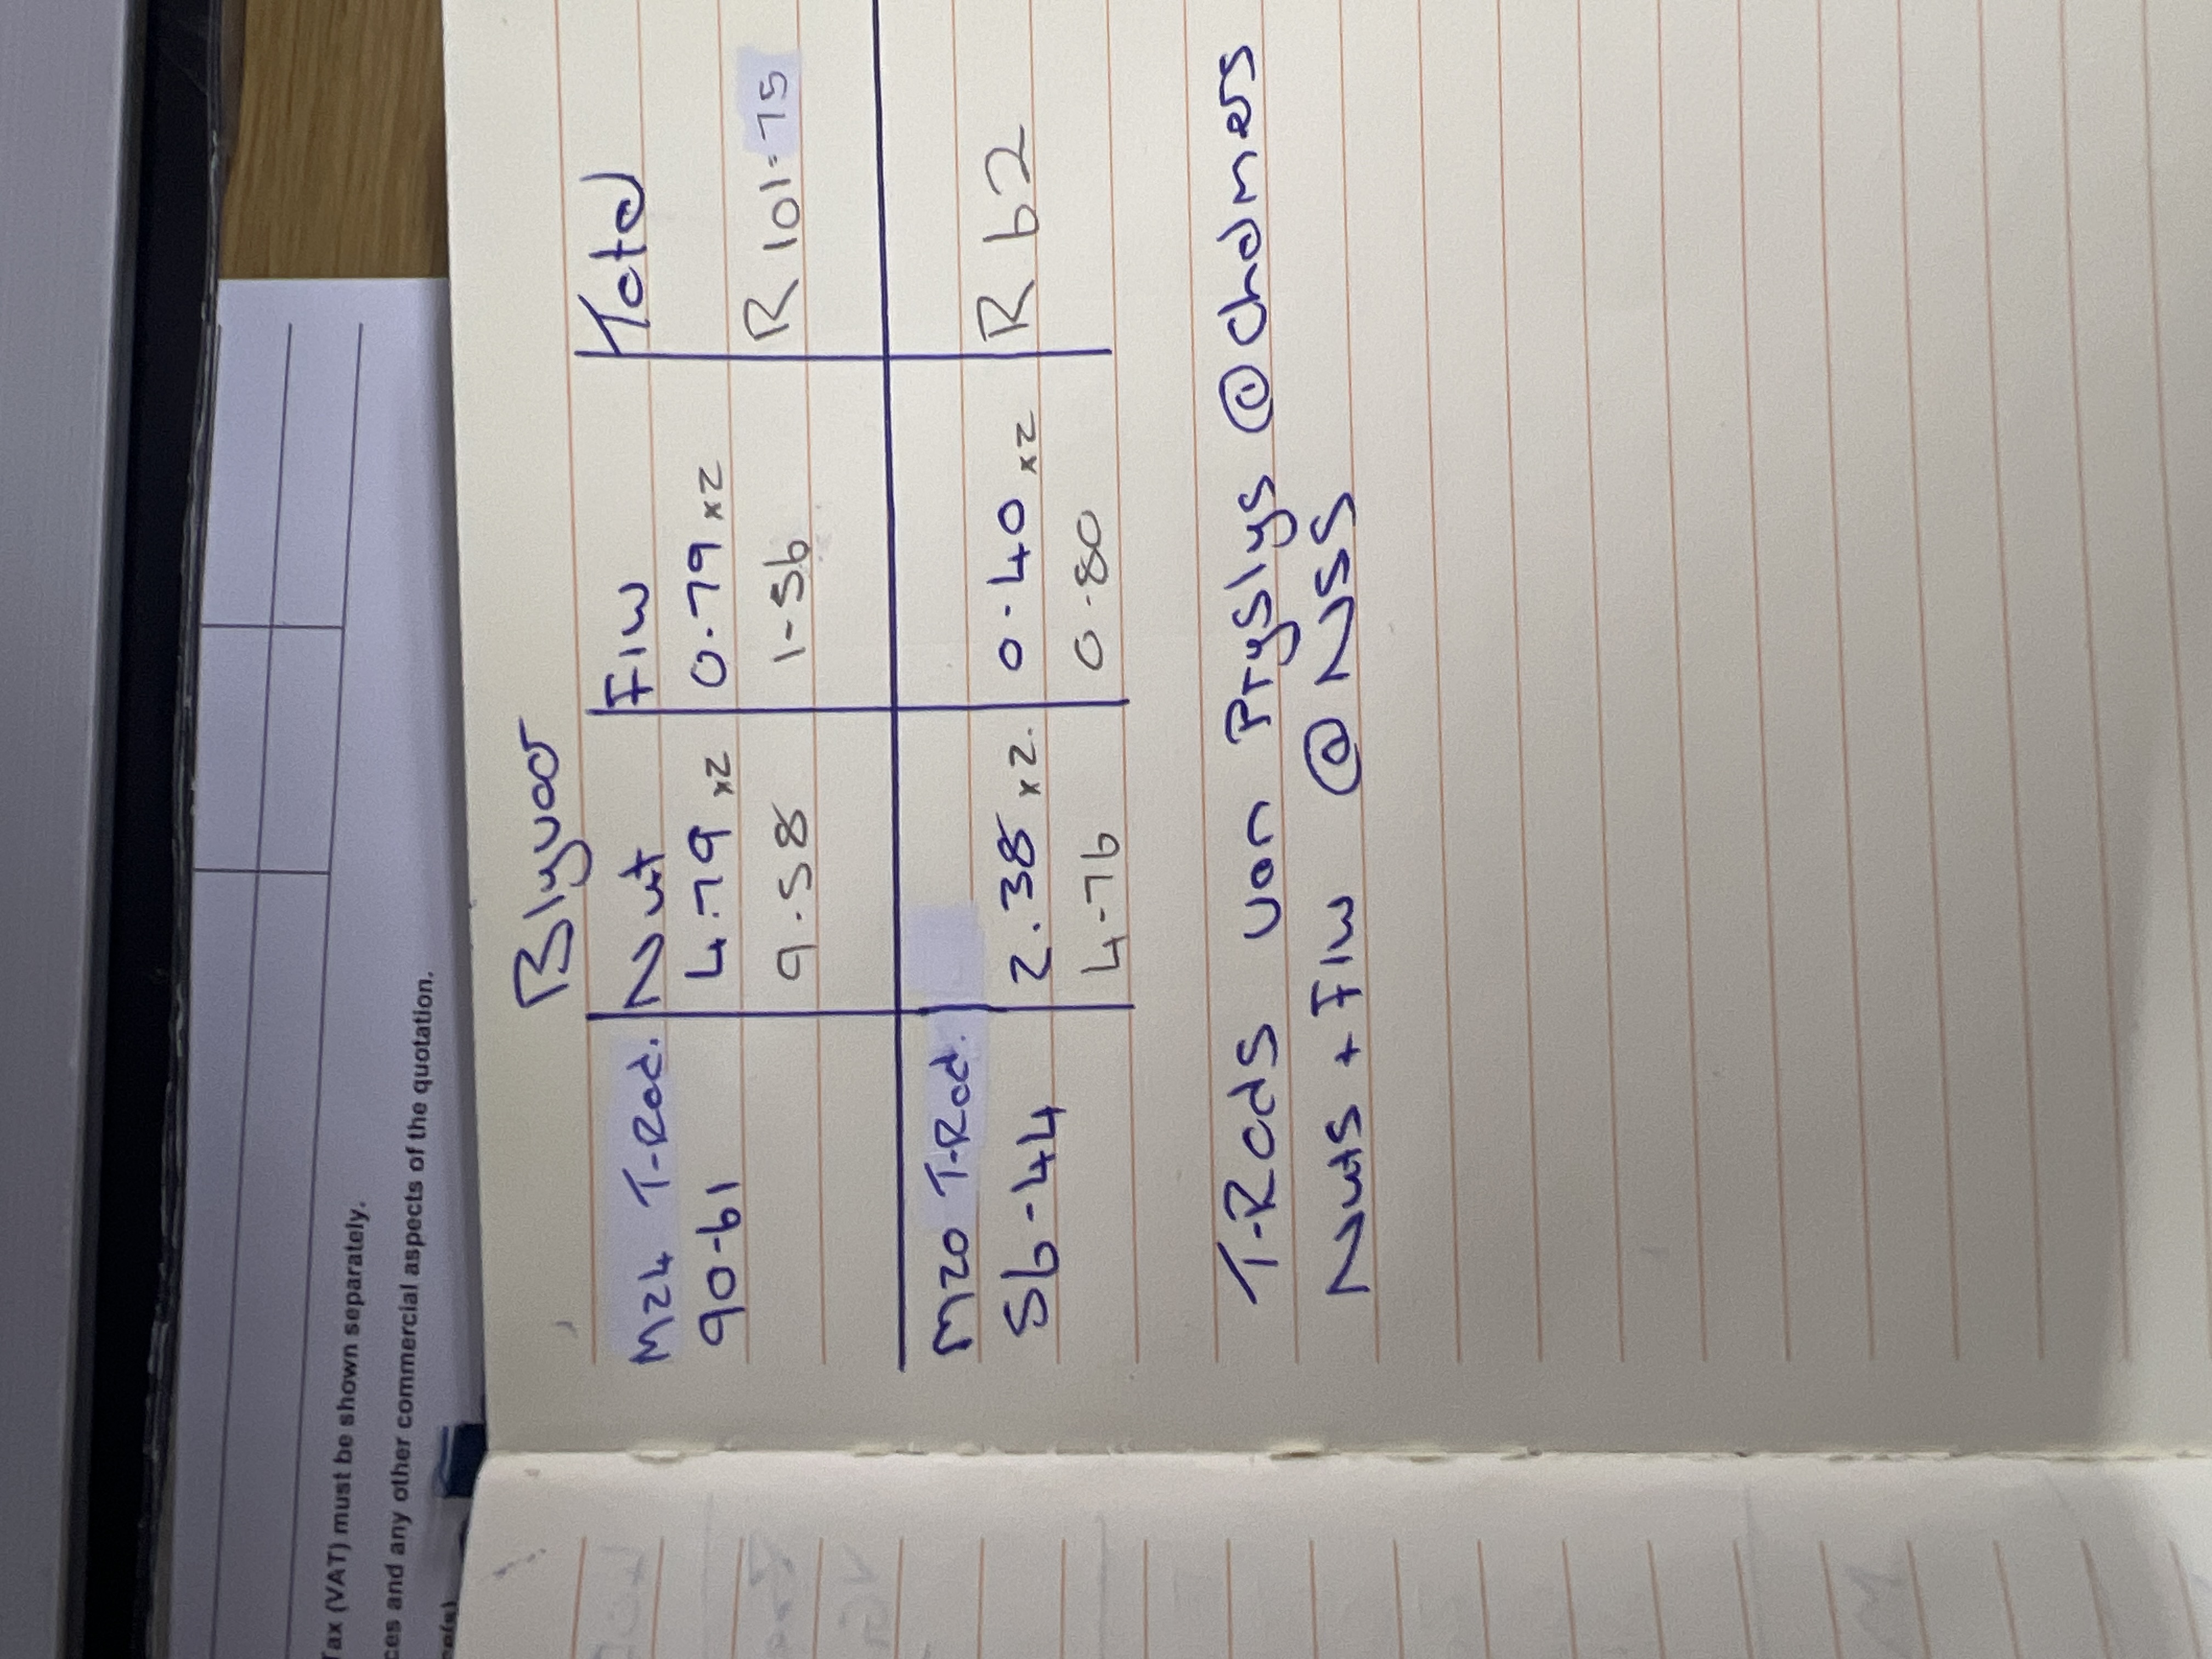 Tax (VAT) must be shown separately.
ces and any other commercial aspects of the quotation.
Blyvoor
M24 T-Rod. Nut F/W Total
90-61 4.79 x2 0.79 x2
9.58 1-56 R 101-75
M20 T-Rod.
56-44 2.38 x2. 0.40 x2 R 62
4-76 0-80
T-Rods van Pryslys @ Chalmers
Nuts + F/W @ NSS